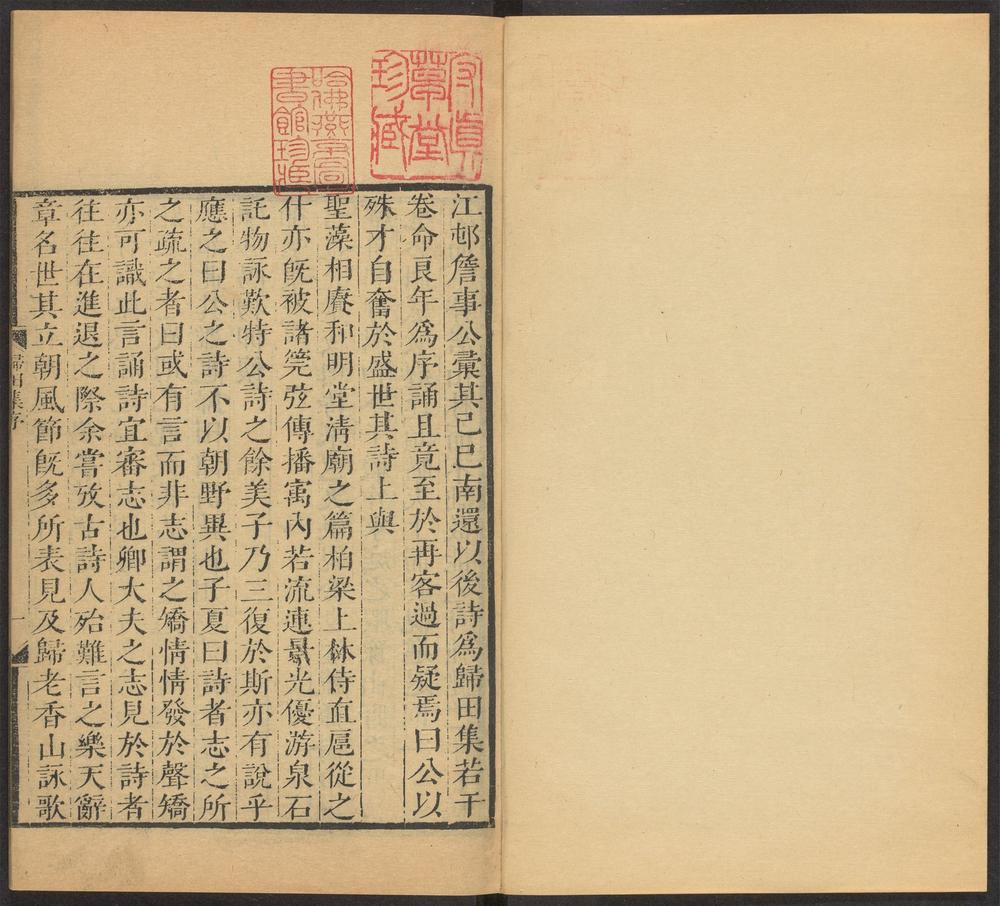 江邨詹事公彙其己巳南還以後詩爲歸田集若干
卷命良年爲序誦且竟至於再客過而疑焉曰公以
殊才自奮於盛世其詩上與
聖藻相賡和明堂淸廟之篇柏梁上林侍直扈從之
什亦旣被諸筦弦傳播寓內若流連景光優游泉石
託物詠歎特公詩之餘美子乃三復於斯亦有說乎
應之曰公之詩不以朝野異也子夏曰詩者志之所
之疏之者曰或有言而非志謂之矯情情發於聲矯
亦可識此言誦詩宜審志也卿大夫之志見於詩者
往往在進退之際余嘗攷古詩人殆難言之樂天辭
章名世其立朝風節旣多所表見及歸老香山詠歌
歸田集序
一
守眞
草堂
珍藏
哈佛燕京圖
書館珍藏